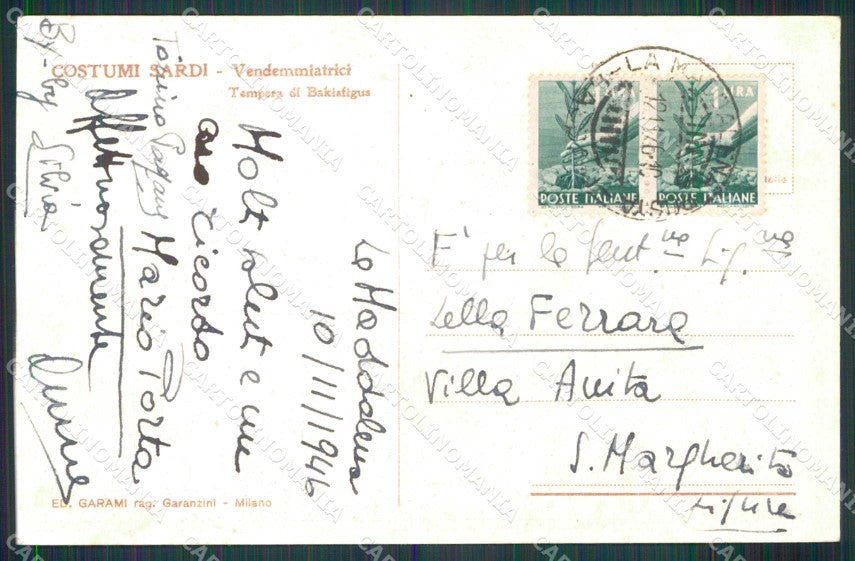 COSTUMI SARDI - Vendemmiatrici
Tempera di Bakisfigus
La Maddalena
10/11/1946
Molti saluti e un
caro ricordo
Mario Porta
Affettuosamente
By-by Silvia
LIRA
1 LIRA
POSTE ITALIANE
POSTE ITALIANE
E' per la Gent.ma Sig.na
Lella Ferrara
Villa Anita
S. Margherita
Ligure
ED. GARAMI rag. Garanzini - Milano
CARTOLINOMANIA